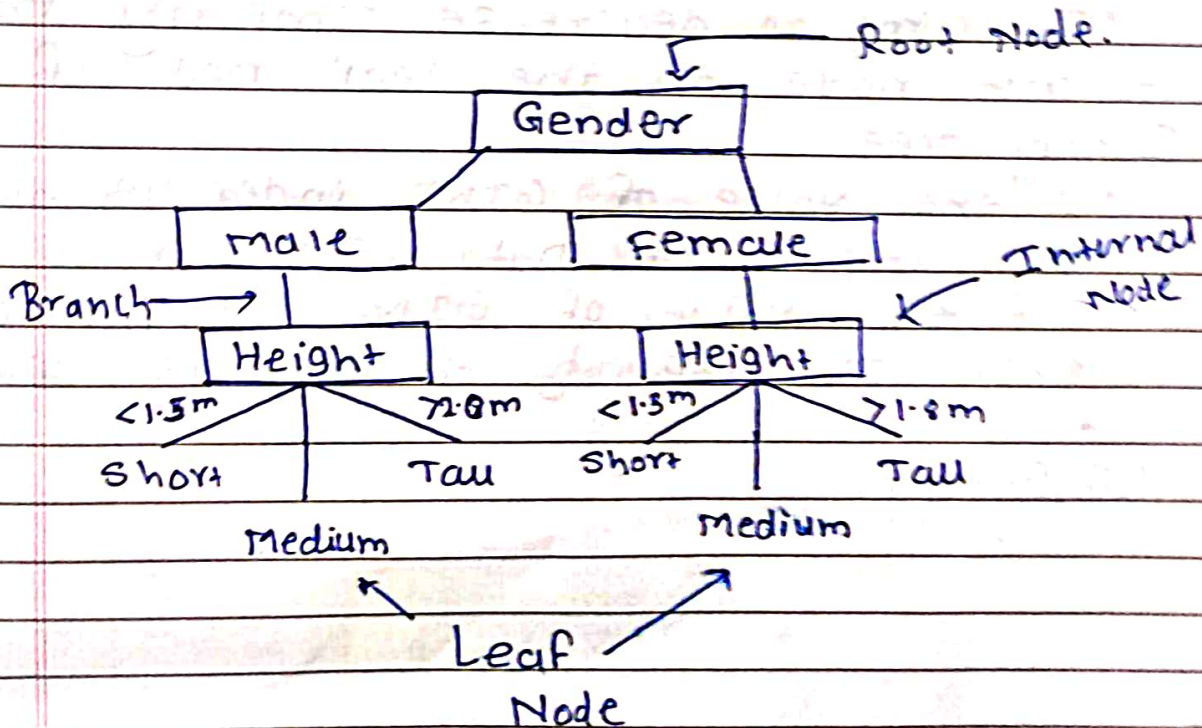 Root Node.
Gender
Male
Female
Internal
Node
Branch
Height
Height
<1.5m
>2.0m
<1.3m
>1.8m
Short
Tall
Short
Tall
Medium
Medium
Leaf
Node